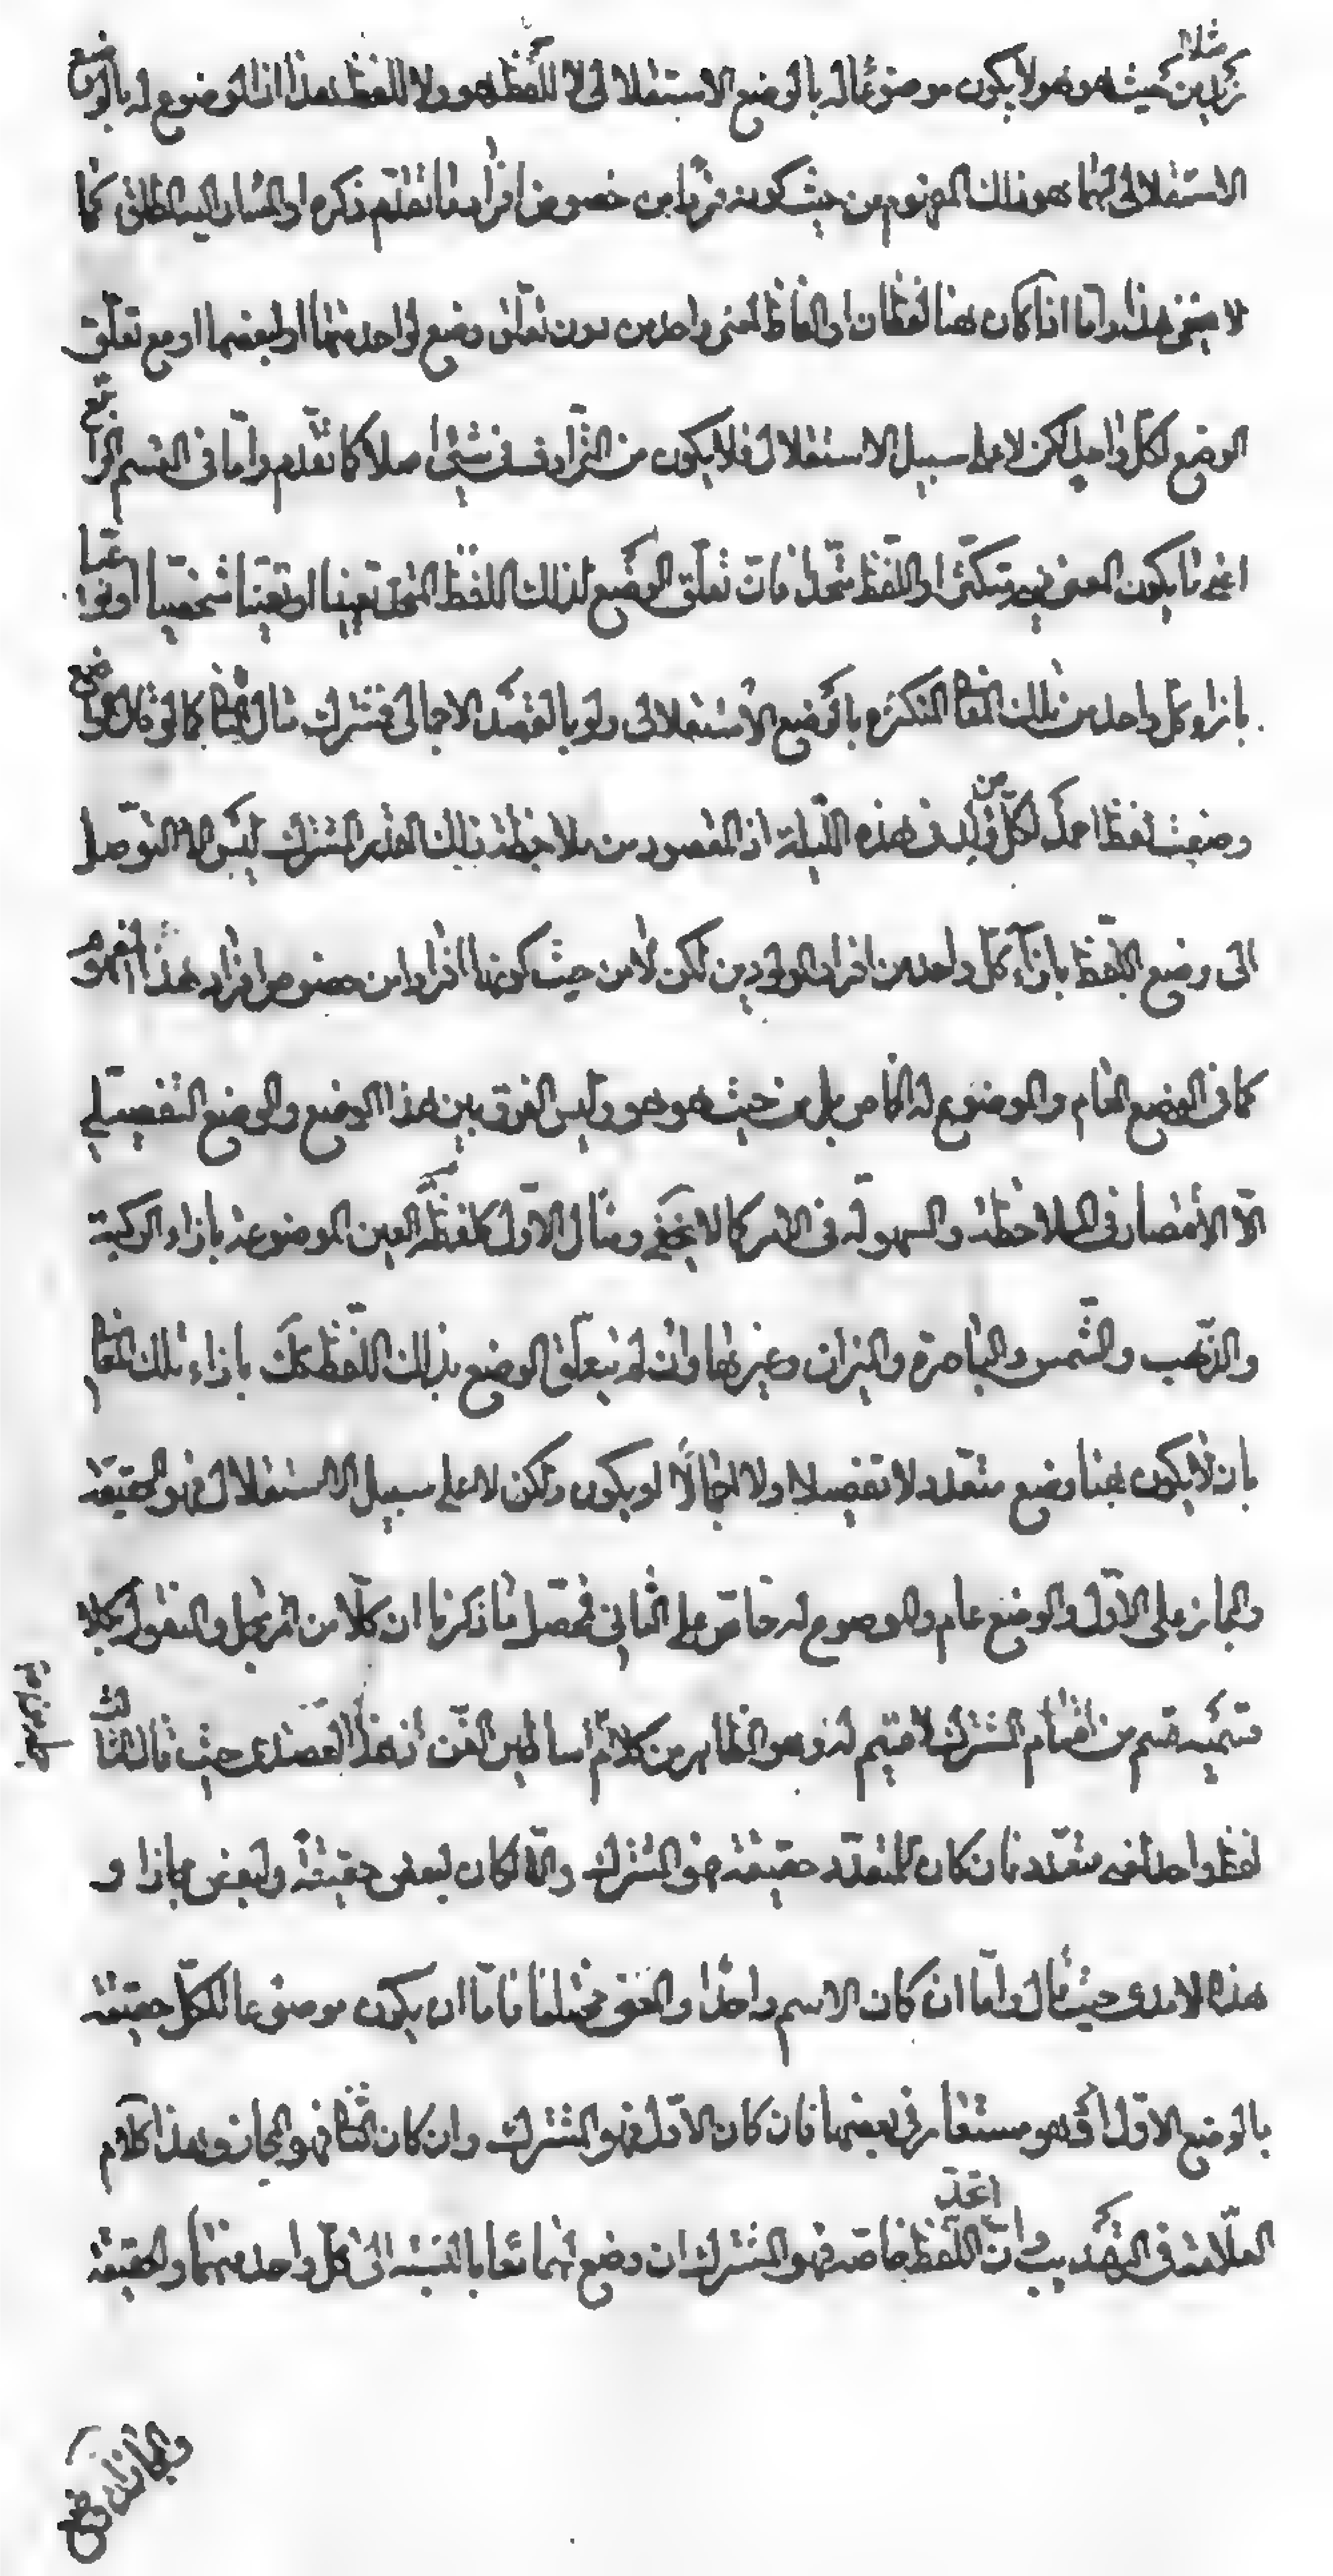 زيد من حيث هو هو لا يكون موضوعا له بالوضع الاستقلالى لا للفظ هو ولا للفظ هذا اذ الموضوع له بالوضع
الاستقلالى لهما هو ذلك المفهوم من حيث كونه فردا من خصوص افراد ما تقدم ذكره او المشار اليه المطلق كما
لا يخفى هذا واما اذا كان هنا لفظان او الفاظ لمعنى واحد من دون تعلق وضع لواحد منهما او لبعضهما او مع تعلق
الوضع لكل واحد لكن لا على سبيل الاستقلال فلا يكون من الترادف فى شئ اصلا كما تقدم واما فى القسم الرابع
اعنى ما يكون المعنى فيه متكثرا واللفظ متحدا فان تعلق الوضع لذلك اللفظ المتحد تعيينا او تعينا شخصيا او نوعيا
بازاء كل واحد من تلك المعانى المتكثره بالوضع الاستقلالى ولو بالقصد الاجمالى فمشترك كما لو قال الواضع
وضعت لفظ احمد لكل من ولد فى هذه الليلة اذ المقصود من ملاحظة ذلك القدر المشترك ليس الا التوصل
الى وضع اللفظ بازاء كل واحد من افراد المولودين لكن لا من حيث كونها افرادا من خصوص افراد هذا المفهوم
كما فى الوضع العام والموضوع له الخاص بل من حيث هو هو وليس الفرق بين هذا الوضع والوضع التفصيلى
الا الاختصار فى الملاحظة والسهولة فى الذكر كما لا يخفى ومثال الاول كلفظة العين الموضوعة بازاء الركبة
والذهب والشمس والباصرة والميزان وغيرها وان لم يتعلق الوضع بذلك اللفظ كك بازاء تلك المعانى
بان لا يكون هنا وضع متعدد لا تفصيلا ولا اجمالا او يكون ولكن لا على سبيل الاستقلال فهو الحقيقة
والمجاز على الاول والوضع عام والموضوع له خاص على الثانى فحصل مما ذكرنا ان كلا من المرتجل والمنقول بكلا
قسميه قسم من اقسام المشترك لا قسيم له وهو الظاهر من كلام اساطين الفن منهم العضدى حيث قال الثالث
لفظ واحد لمعنى متعدد فان كان للمتعدد حقيقة فهو المشترك والا لكان لبعض حقيقة ولبعض مجازا و
هذه الامدى حيث قال واما ان كان الاسم واحدا والمعنى مختلفا فاما ان يكون موضوعا للكل حقيقة
بالوضع الاول او هو مستعار فى بعضها فان كان الاول فهو المشترك وان كان الثانى فهو المجاز وهذا كلام
العلامة فى التهذيب وان اتحد اللفظ خاصة فهو المشترك ان وضع لهما معا بالنسبة الى كل واحد منهما والحقيقة
والمجاز ان وضع